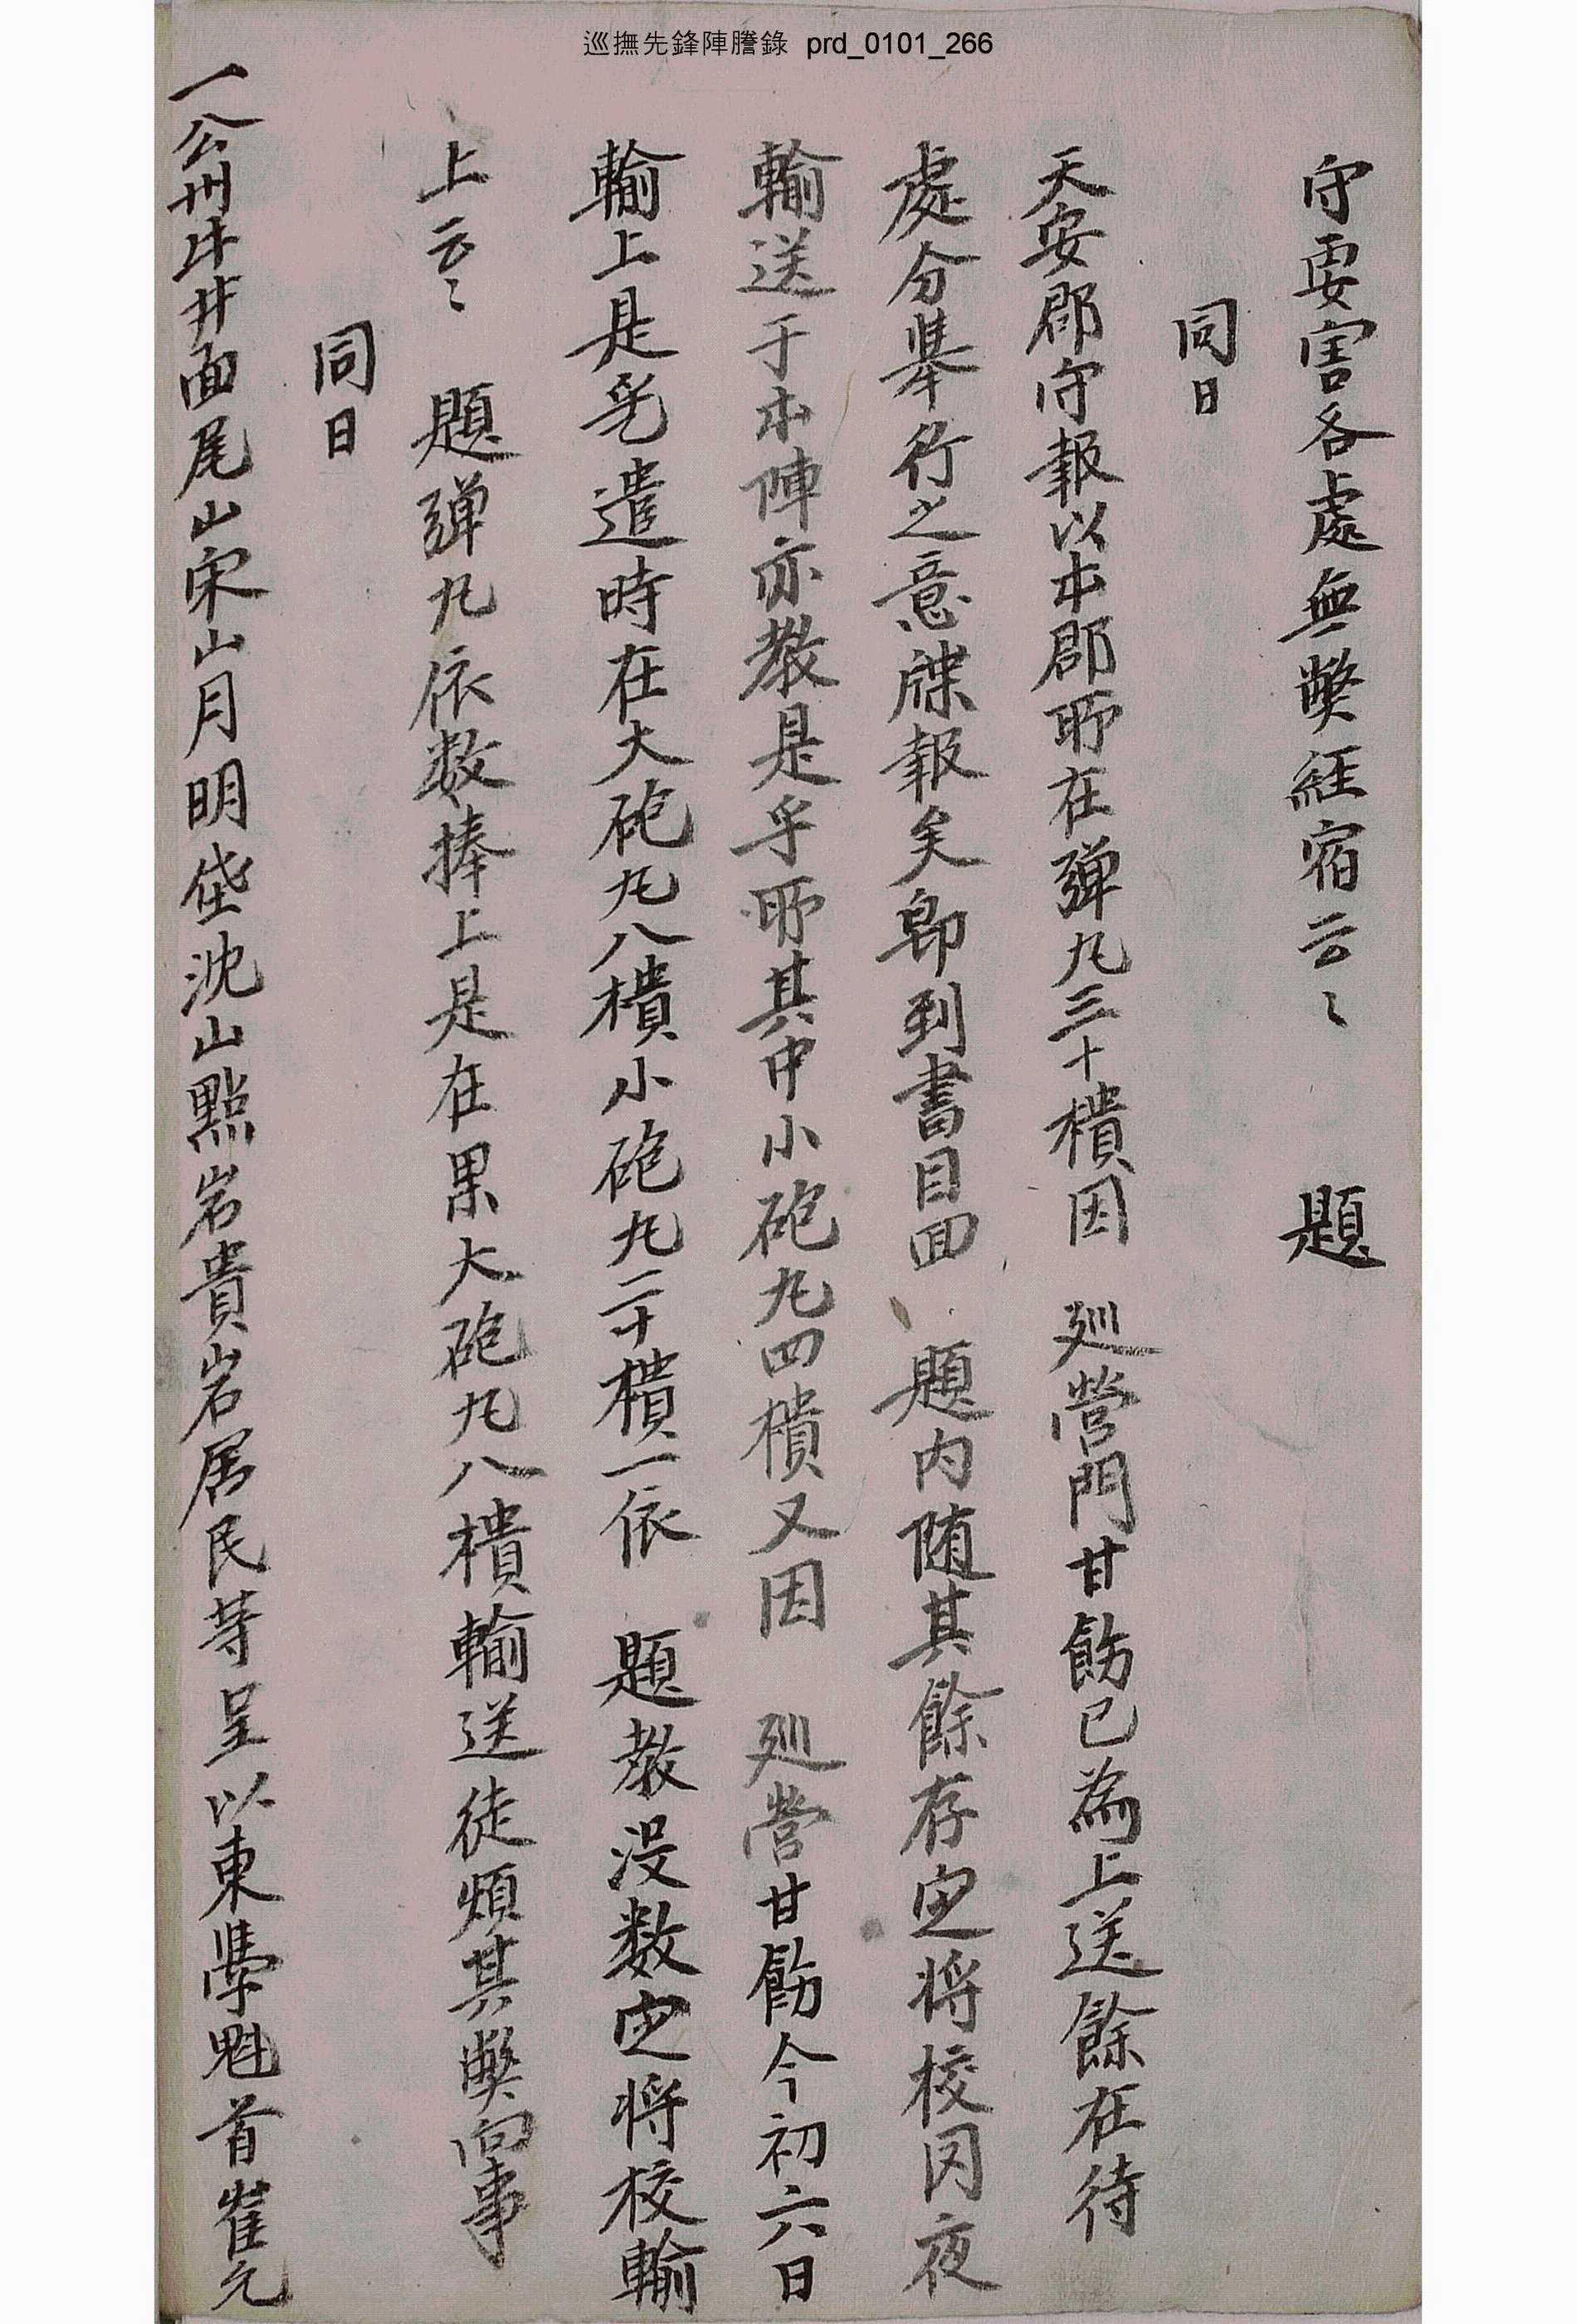 巡撫先鋒陣謄錄 prd_0101_266
守要害各處無弊經宿云〻 題
同日
天安郡守報以本郡所在弹丸三十樻因 廵營門甘飭已為上送餘在待
處分舉行之意牒報矣卽到書目回 題內随其餘存定将校罔夜
輸送于本陣亦教是乎所其中小砲丸四樻又因 廵營甘飭今初六日
輸上是乎遣時在大砲丸八樻小砲丸二十樻一依 題教没数定将校輸
上云〻 題弹丸依数捧上是在果大砲丸八樻輸送徒煩其弊向事
同日
一公州牛井面尾山宋山月明垈沈山點岩貴岩居民等呈以東學魁首崔元